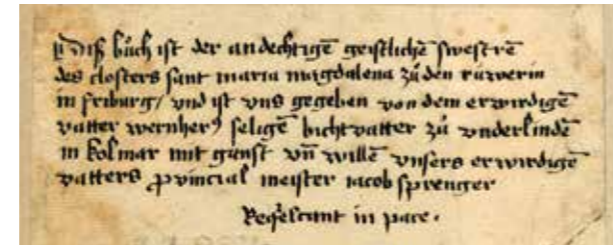 Diß bůch ist der andechtigē geistlichē swestrē
des closters sant maria magdalena zů den rúwerin
in friburg / vnd ist vns gegeben von dem erwirdigē
vatter wernherꝰ seligē bichtvatter zů vnderlindē
in kolmar mit gunst vn̄ willē vnsers erwirdigē
vatters ꝓvincial meister iacob sprenger
Reqͥescant in pace .